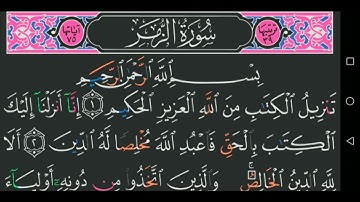 ترتيبها ٣٩ سُورَةُ الزُّمَرِ آياتها ٧٥
بِسْمِ اللَّهِ الرَّحْمَٰنِ الرَّحِيمِ
تَنزِيلُ الْكِتَابِ مِنَ اللَّهِ الْعَزِيزِ الْحَكِيمِ ۝١ إِنَّا أَنزَلْنَا إِلَيْكَ
الْكِتَابَ بِالْحَقِّ فَاعْبُدِ اللَّهَ مُخْلِصًا لَّهُ الدِّينَ ۝٢ أَلَا
لِلَّهِ الدِّينُ الْخَالِصُ ۚ وَالَّذِينَ اتَّخَذُوا مِن دُونِهِ أَوْلِيَاءَ